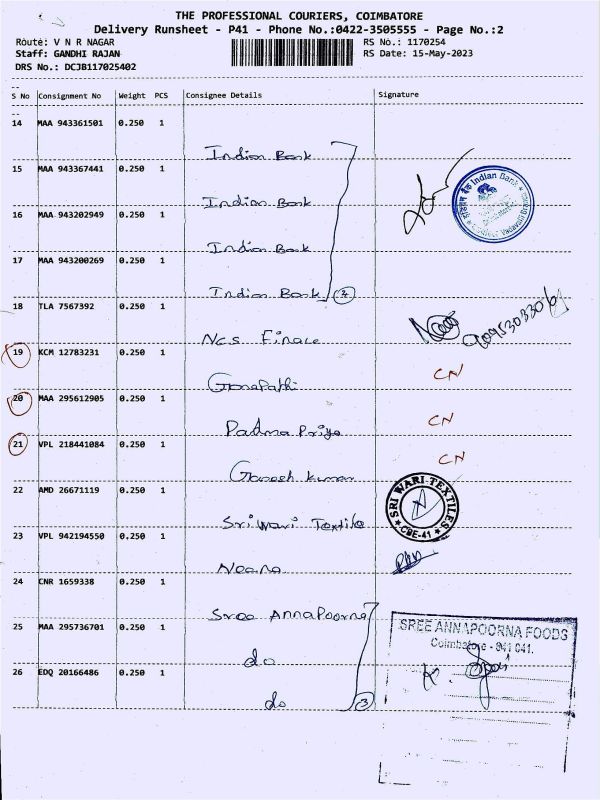 THE PROFESSIONAL COURIERS, COIMBATORE
Delivery Runsheet - P41 - Phone No.:0422-3505555 - Page No.:2
Route: V N R NAGAR RS No.: 1170254
Staff: GANDHI RAJAN RS Date: 15-May-2023
DRS No.: DCJB117025402
S No Consignment No Weight PCS Consignee Details Signature
14 MAA 943361501 0.250 1
Indian Bank
15 MAA 943367441 0.250 1
Indian Bank
Indian Bank
16 MAA 943202949 0.250 1
Indian Bank
17 MAA 943200269 0.250 1
Indian Bank 4
18 TLA 7567392 0.250 1
Ncs Finace
19 KCM 12783231 0.250 1 CN
Ganapathi
20 MAA 295612905 0.250 1 CN
Padma Priya
21 VPL 218441084 0.250 1 CN
Ganesh kumar
22 AMD 26671119 0.250 1
SRI WARI TEXTILES
CBE-41
Sri Wari Textile
23 VPL 942194550 0.250 1
24 CNR 1659338 0.250 1
Sree Annapoorna
25 MAA 295736701 0.250 1
SREE ANNAPOORNA FOODS
Coimbatore - 641 041.
do
26 EDQ 20166486 0.250 1
do 3